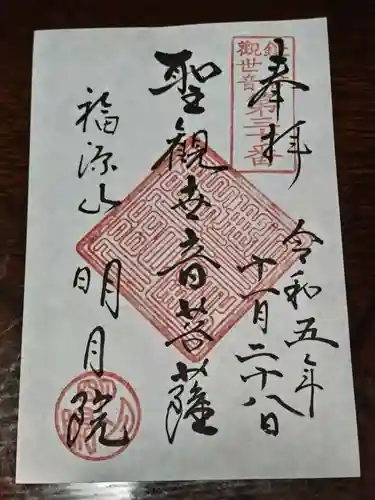 奉拝
鎌倉
観世音
第三十番
令和五年
十一月二十八日
聖観世音菩薩
福源山
明月院